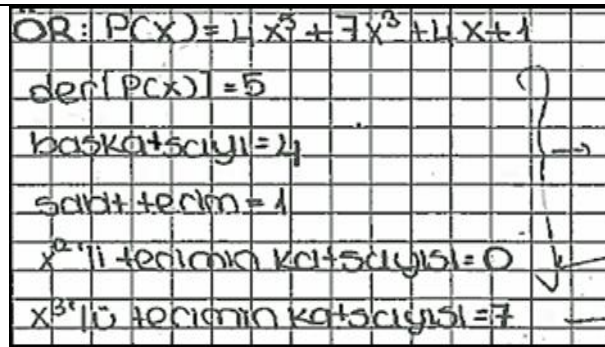 ÖR: P(x) = 4x⁵ + 7x³ + 4x + 1
der[P(x)] = 5
baskatsayı = 4
sabit terim = 1
x²'li terimin katsayısı = 0
x³'lü terimin katsayısı = 7